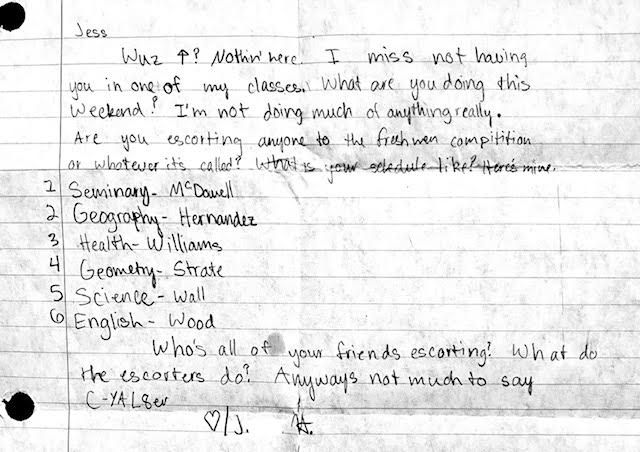 Jess
Wuz ↑? Nothin' here. I miss not having
you in one of my classes. What are you doing this
weekend? I'm not doing much of anything really.
Are you escorting anyone to the freshmen compitition
or whatever it's called? What is your schedule like? Here's mine.
1 Seminary - McDowell
2 Geography - Hernandez
3 Health - Williams
4 Geometry - Strate
5 Science - Wall
6 English - Wood
Who's all of your friends escorting? What do
the escorters do? Anyways not much to say
C-YAL8er
♡/J. H.